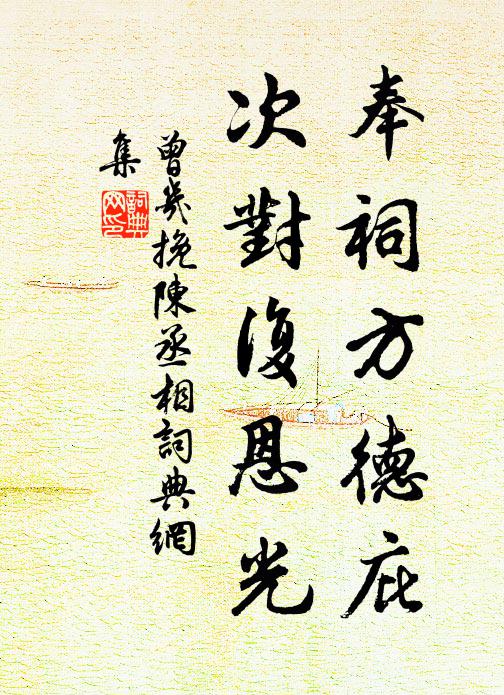 奉祠方德庇
次對復恩光
曾幾挽陳丞相詞典網
集
詞典网印